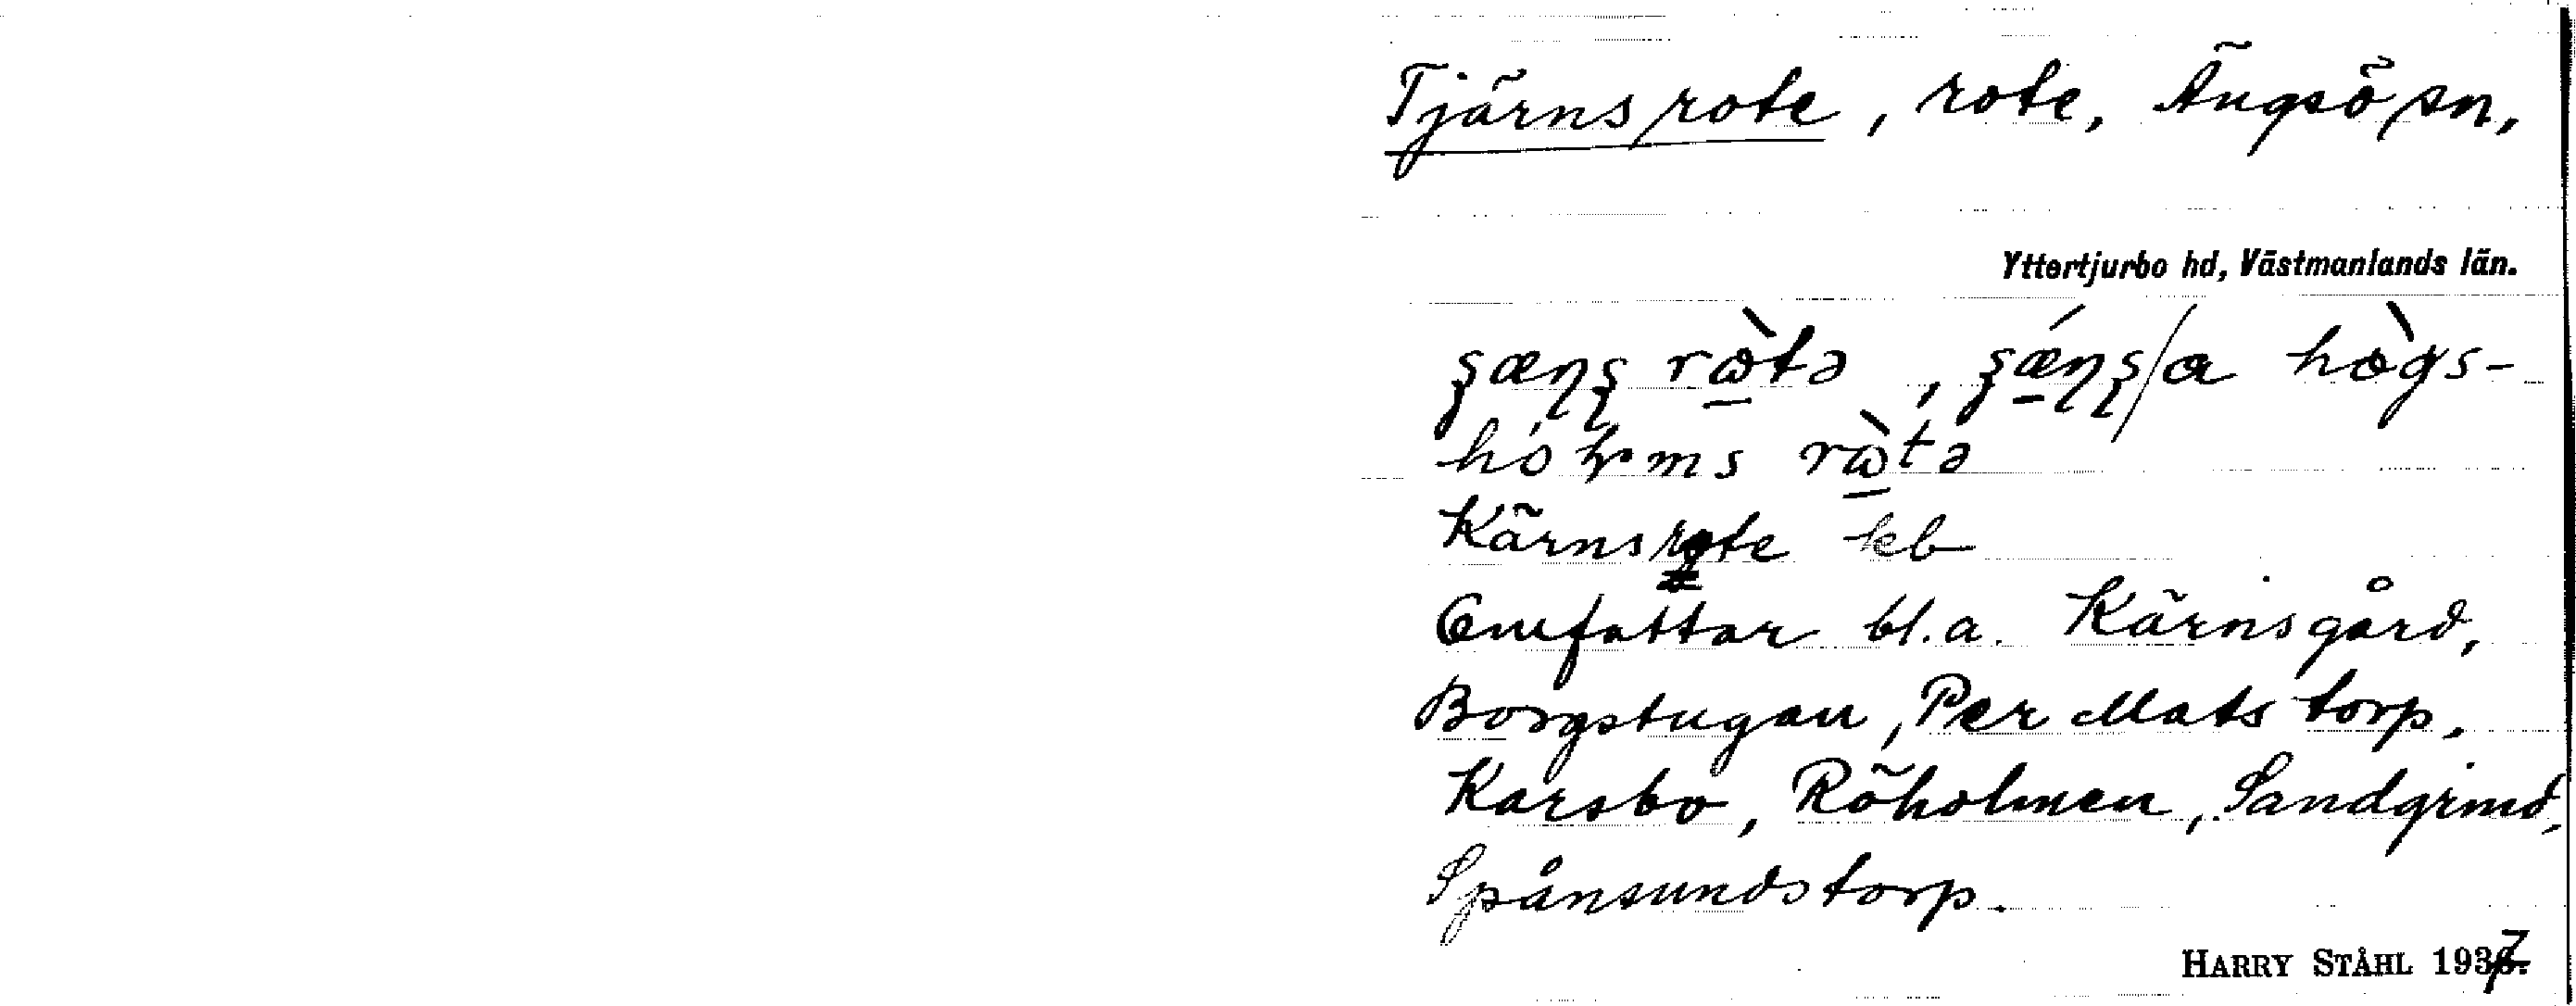 Tjärnsrote, rote, Ängsö sn,
Yttertjurbo hd, Västmanlands län.
Kärnsrote kb
Omfattar bl.a. Kärnsgård,
Borgstugan, Per Mats torp,
Karsbo, Röholmen, Sandgrind,
Spånsundstorp.
HARRY STÅHL 1937